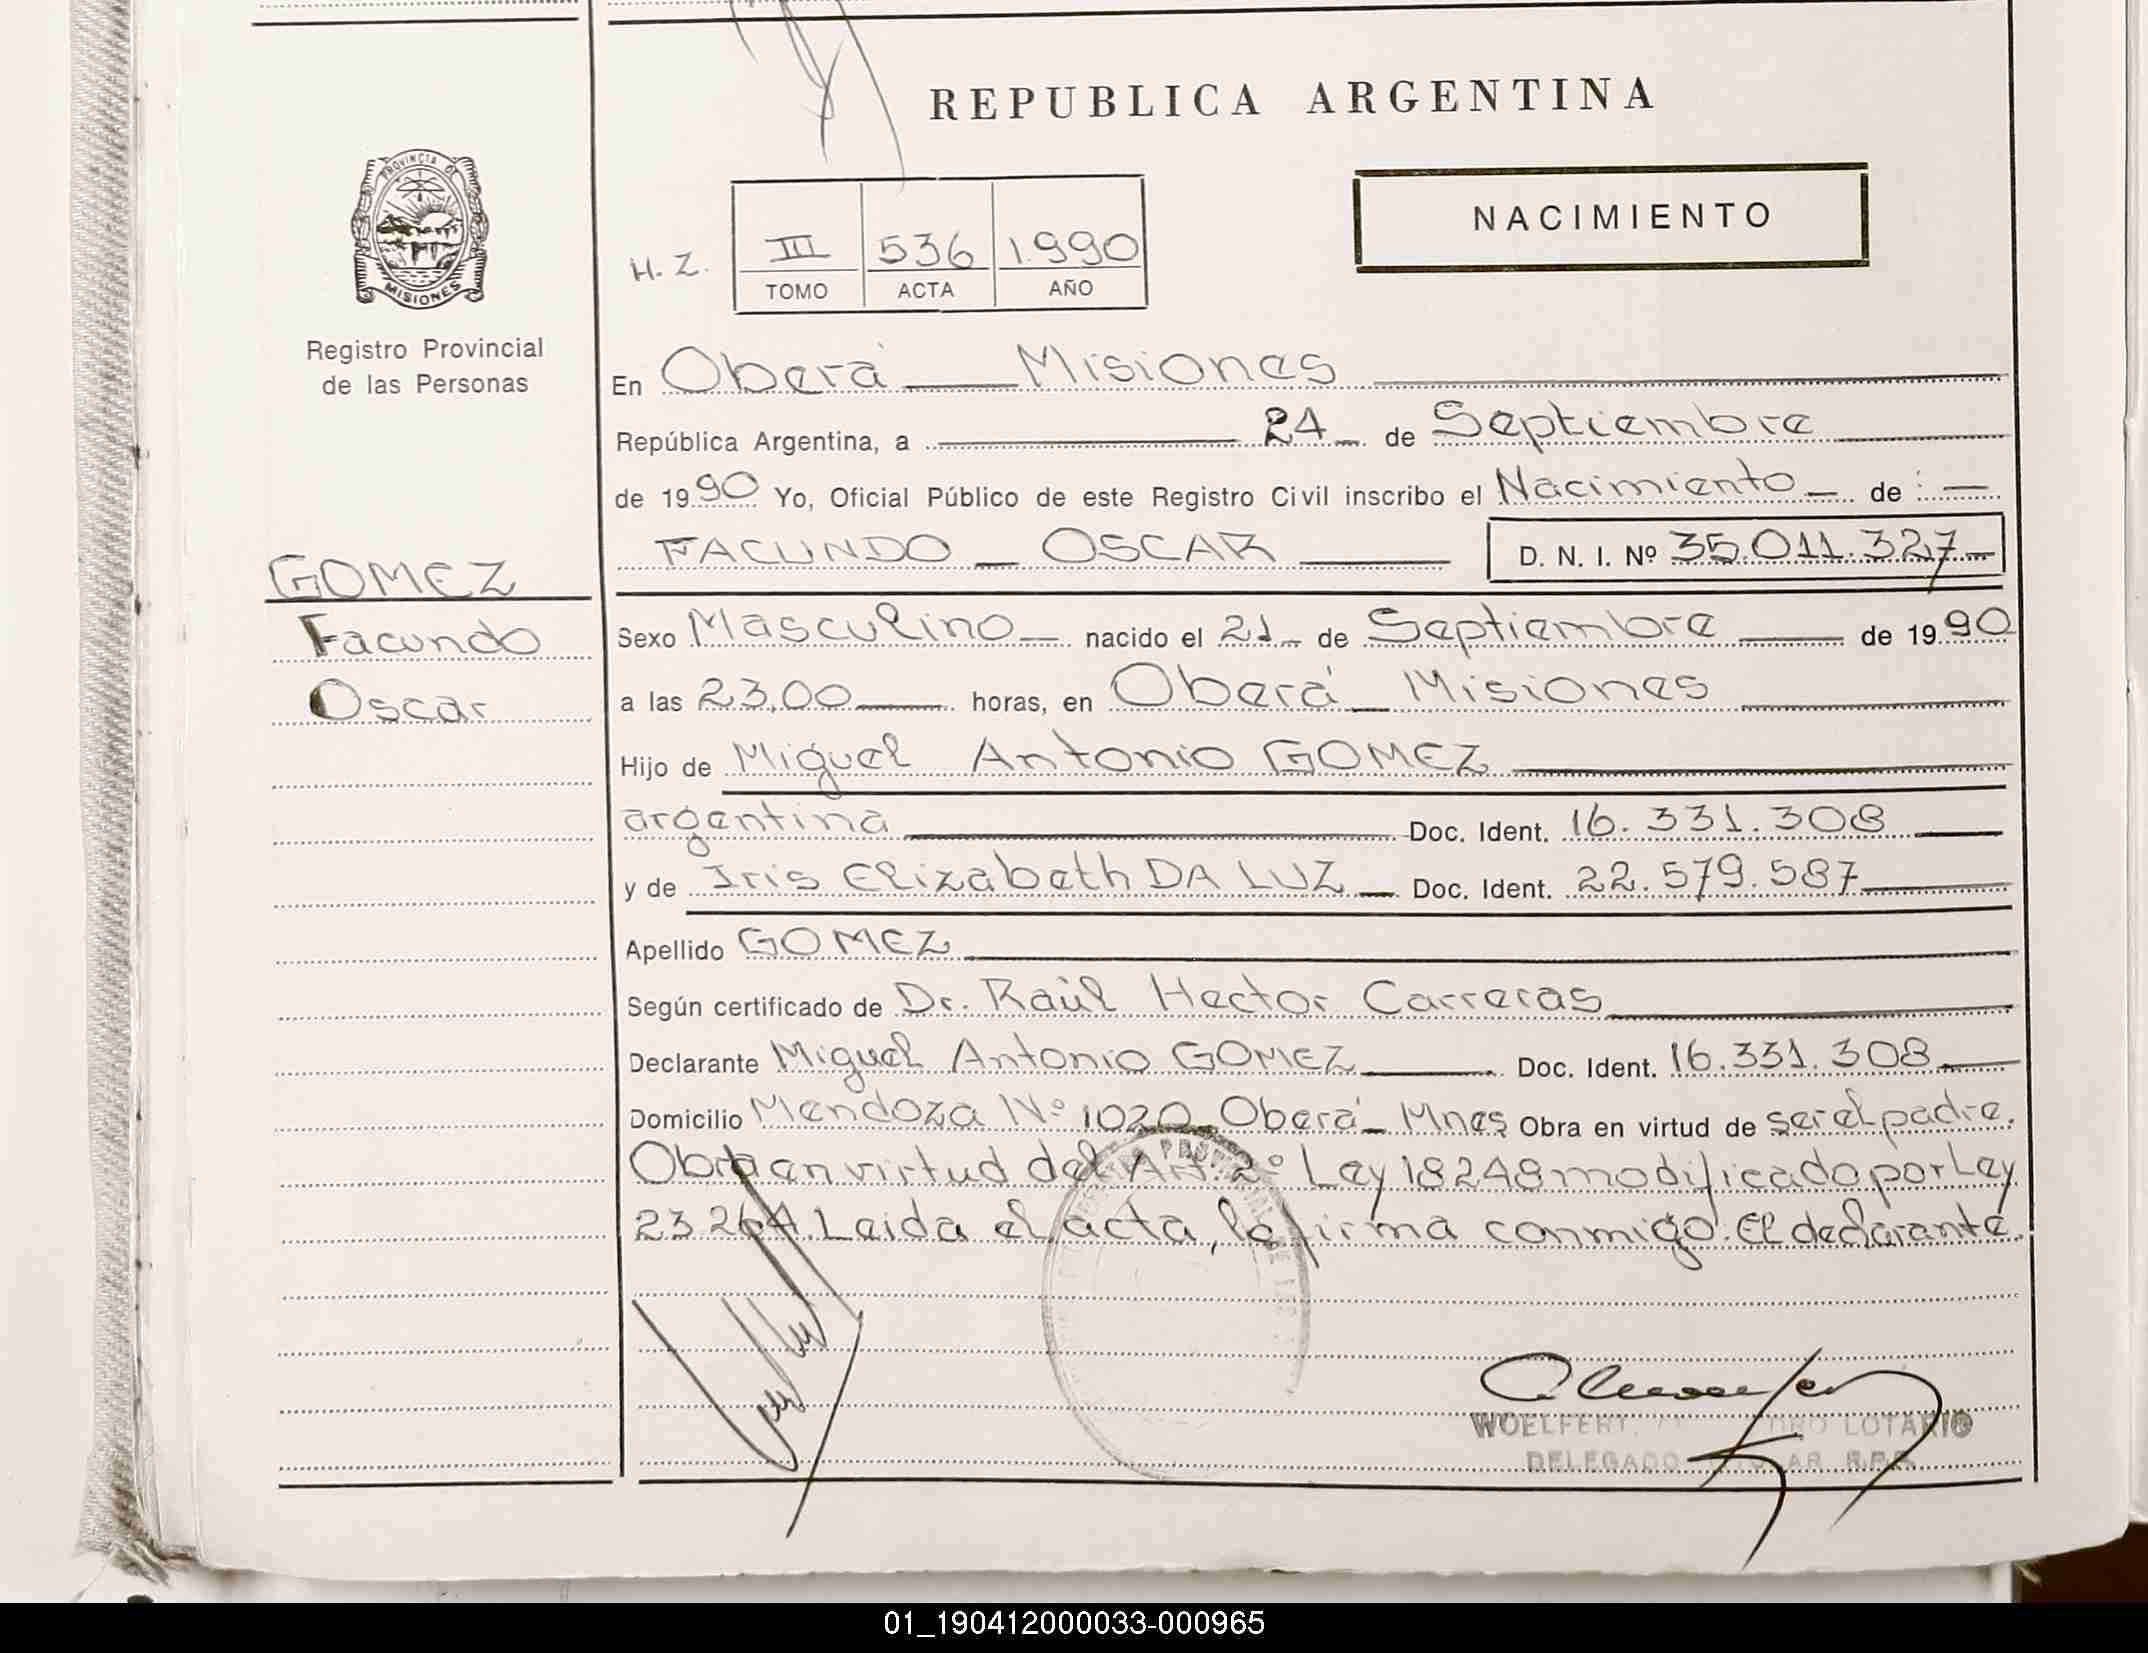 REPUBLICA ARGENTINA
NACIMIENTO
PROVINCIA DE
MISIONES
Registro Provincial
de las Personas
H. Z.
III 536 1.990
TOMO ACTA AÑO
En Oberá Misiones
República Argentina, a 24 de Septiembre
de 1990 Yo, Oficial Público de este Registro Civil inscribo el Nacimiento de :
FACUNDO OSCAR D. N. I. Nº 35.011.327
GOMEZ
Facundo
Oscar
Sexo Masculino nacido el 21 de Septiembre de 1990
a las 23,00 horas, en Oberá Misiones
Hijo de Miguel Antonio GOMEZ
argentina Doc. Ident. 16.331.308
y de Iris Elizabeth DA LUZ Doc. Ident. 22.579.587
Apellido GOMEZ
Según certificado de Dr. Raúl Hector Carreras
Declarante Miguel Antonio GOMEZ Doc. Ident. 16.331.308
Domicilio Mendoza Nº 1020 Oberá Mnes Obra en virtud de ser el padre.
Obra en virtud del Art. 2º Ley 18248 modificado por Ley
23.264. Leida el acta, la firma conmigo. El declarante.
WOELFERT, LOTARIO
DELEGADO
01_190412000033-000965